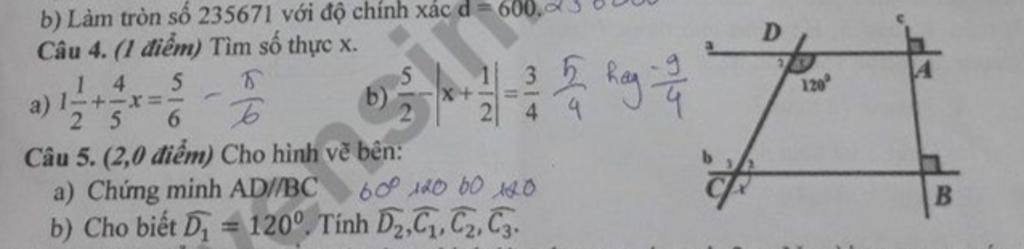 b) Làm tròn số 235671 với độ chính xác d = 600.
Câu 4. (1 điểm) Tìm số thực x.
a) 1 1/2 + 4/5 x = 5/6 - 5/6
b) 5/2 - |x + 1/2| = 3/4 5/4 hay -9/4
Câu 5. (2,0 điểm) Cho hình vẽ bên:
a) Chứng minh AD//BC 60° 120 60 120
b) Cho biết D₁ = 120⁰. Tính D₂, C₁, C₂, C₃.
D
c
a
A
2
1
120⁰
b
3
2
C
1
B